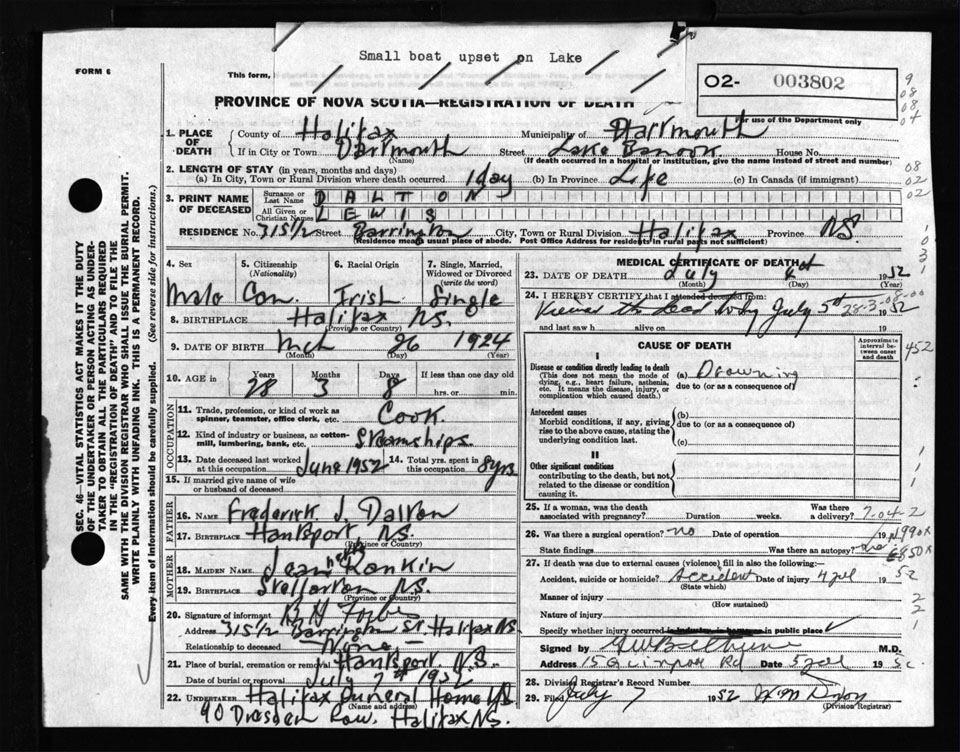 Small boat upset on Lake
FORM 6
This form,
O2- 003802
PROVINCE OF NOVA SCOTIA—REGISTRATION OF DEATH
For use of the Department only
1. PLACE OF DEATH County of Halifax Municipality of Dartmouth
If in City or Town Dartmouth Street Lake Banook House No.
(Name) (If death occurred in a hospital or institution, give the name instead of street and number)
2. LENGTH OF STAY (in years, months and days)
(a) In City, Town or Rural Division where death occurred 1 day (b) In Province Life (c) In Canada (if immigrant)
3. PRINT NAME OF DECEASED Surname or Last Name DALTON
All Given or Christian Names LEWIS
RESIDENCE No. 315 1/2 Street Barrington City, Town or Rural Division Halifax Province N.S.
(Residence means usual place of abode. Post Office Address for residents in rural parts not sufficient)
4. Sex 5. Citizenship (Nationality) 6. Racial Origin 7. Single, Married, Widowed or Divorced (write the word)
Male Can. Irish Single
8. BIRTHPLACE Halifax N.S.
(Province or Country)
9. DATE OF BIRTH Mch 26 1924
(Month) (Day) (Year)
10. AGE in 28 3 8 If less than one day old
hrs. or min.
OCCUPATION
11. Trade, profession, or kind of work as spinner, teamster, office clerk, etc. Cook
12. Kind of industry or business, as cotton-mill, lumbering, bank, etc. Steamships
13. Date deceased last worked at this occupation June 1952 14. Total yrs. spent in this occupation 8 yrs.
15. If married give name of wife or husband of deceased
FATHER
16. NAME Frederick J. Dalton
17. BIRTHPLACE Hantsport N.S.
(Province or Country)
MOTHER
18. MAIDEN NAME Jean Rankin
19. BIRTHPLACE Stellarton N.S.
(Province or Country)
20. Signature of informant
Address 315 1/2 Barrington St. Halifax N.S.
Relationship to deceased None
21. Place of burial, cremation or removal Hantsport N.S.
Date of burial or removal July 7th 1952
22. UNDERTAKER Halifax Funeral Home
(Name and address)
90 Dresden Row, Halifax N.S.
MEDICAL CERTIFICATE OF DEATH
23. DATE OF DEATH July 4 1952
(Month) (Day)
24. I HEREBY CERTIFY that I attended deceased from:
Viewed the dead body July 5 1952
28-3-08-00
and last saw h alive on 19
CAUSE OF DEATH
Approximate interval between onset and death
I
Disease or condition directly leading to death (a) Drowning
(This does not mean the mode of dying, e.g., heart failure, asthenia, etc. It means the disease, injury, or complication which caused death.) due to (or as a consequence of)
Antecedent causes (b)
Morbid conditions, if any, giving rise to the above cause, stating the underlying condition last. due to (or as a consequence of)
(c)
II
Other significant conditions
contributing to the death, but not related to the disease or condition causing it.
25. If a woman, was the death associated with pregnancy? Duration weeks. Was there a delivery?
26. Was there a surgical operation? no Date of operation 19
State findings Was there an autopsy?
27. If death was due to external causes (violence) fill in also the following:—
Accident, suicide or homicide? Accident Date of injury 4 Jul 1952
(State which)
Manner of injury
(How sustained)
Nature of injury
Specify whether injury occurred in industry, in home or in public place ✓
Signed by M.D.
Address Quinpool Rd Date 5 Jul 195
28. Division Registrar's Record Number
29. Filed July 7 1952
(Division Registrar)
SEC. 46—VITAL STATISTICS ACT MAKES IT THE DUTY
OF THE UNDERTAKER OR PERSON ACTING AS UNDER-
TAKER TO OBTAIN ALL THE PARTICULARS REQUIRED
IN THE "REGISTRATION OF DEATH" AND TO FILE THE
SAME WITH THE DIVISION REGISTRAR WHO SHALL ISSUE THE BURIAL PERMIT.
WRITE PLAINLY WITH UNFADING INK. THIS IS A PERMANENT RECORD.
Every item of information should be carefully supplied. (See reverse side for instructions.)